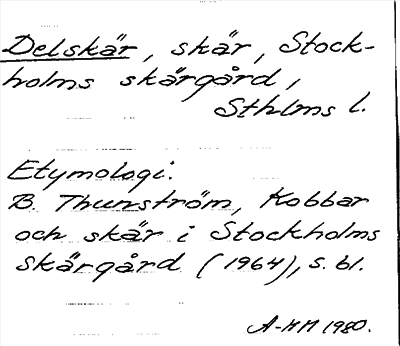 Delskär, skär, Stock-
holms skärgård,
Sthlms l.
Etymologi:
B. Thunström, Kobbar
och skär i Stockholms
skärgård (1964), s. 61.
A-HM 1980.